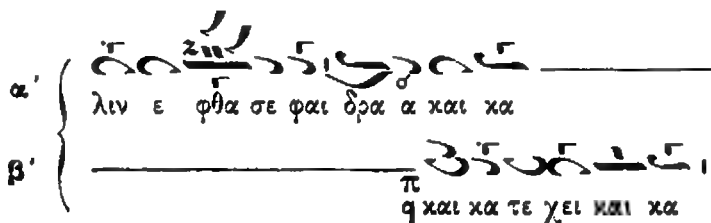 α'
λιν ε φθα σε φαι δρα α και κα
β'
π
q και κα τε χει και κα